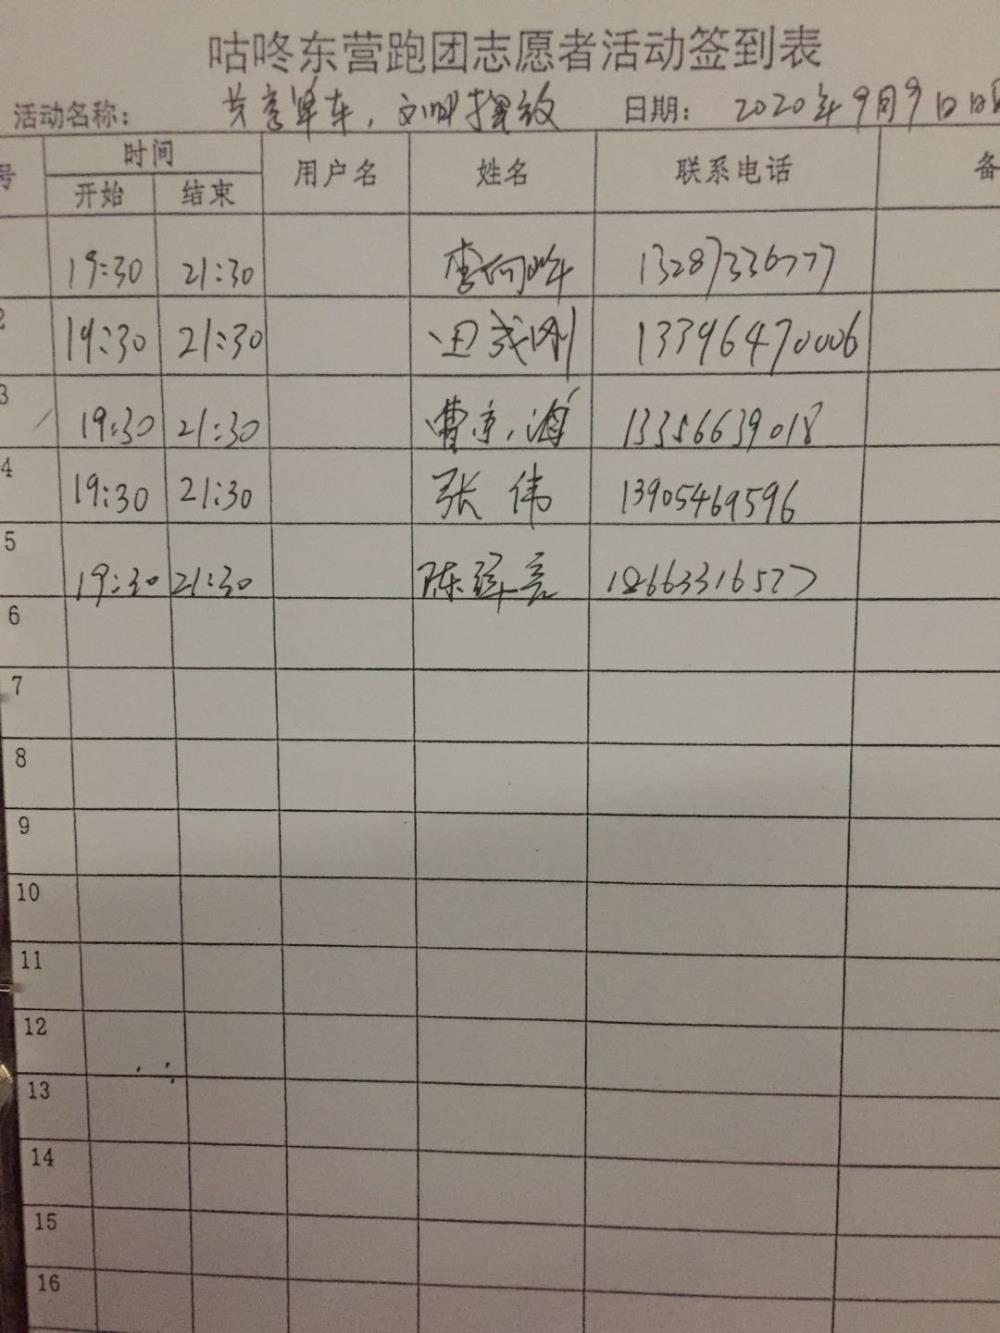 咕咚东营跑团志愿者活动签到表
活动名称： 共享单车，文明摆放 日期： 2020年9月9日
号 时间 用户名 姓名 联系电话 备
开始 结束
19:30 21:30 13287336777
2 19:30 21:30 田成刚 13396470006
3 19:30 21:30 曹京 13356639018
4 19:30 21:30 张伟 13905469596
5 19:30 21:30 陈 亮 18663316577
6
7
8
9
10
11
12
13
14
15
16